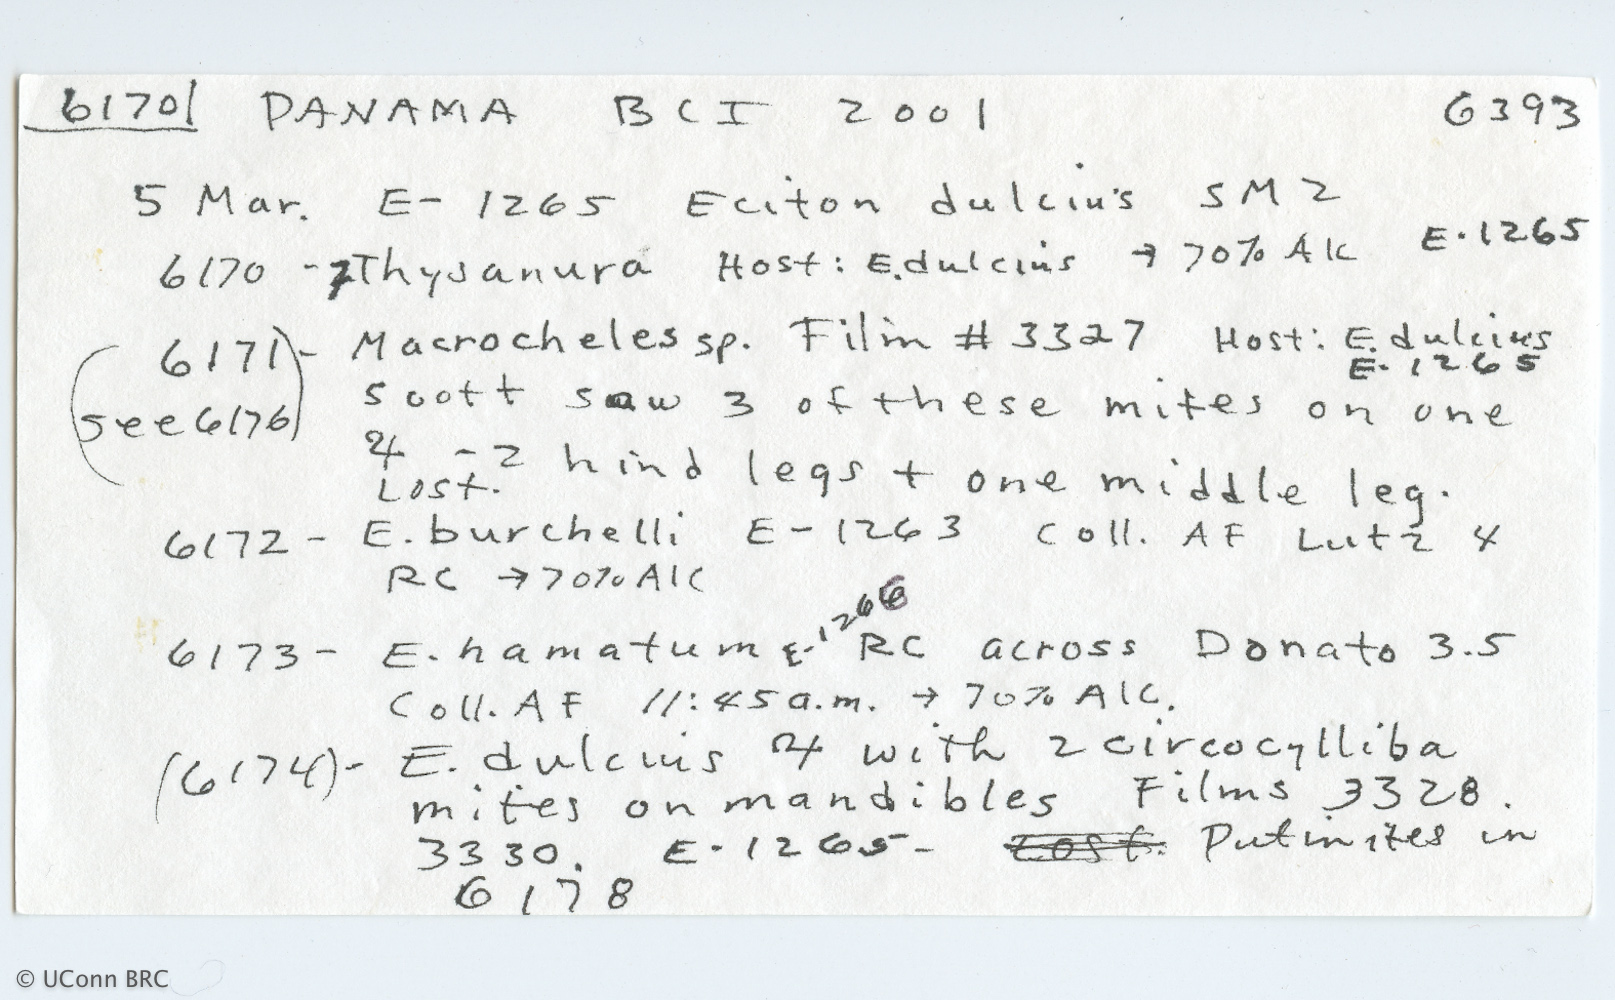 6170 PANAMA BCI 2001 6393
5 Mar. E- 1265 Eciton dulcius SM2
6170 - Thysanura Host: E. dulcius → 70% Alc E-1265
6171 - Macrocheles sp. Film # 3327 Host: E. dulcius
E-1265
(see 6176) Scott saw 3 of these mites on one
♃ - 2 hind legs + one middle leg.
Lost.
6172 - E. burchelli E-1263 Coll. AF Lutz 4
RC → 70% Alc
6173 - E. hamatum E-1266 RC across Donato 3.5
Coll. AF 11:45 a.m. → 70% Alc.
(6174) - E. dulcius ♃ with 2 circocylliba
mites on mandibles Films 3328.
3330. E-1265- Lost. Put mites in
6178
© UConn BRC